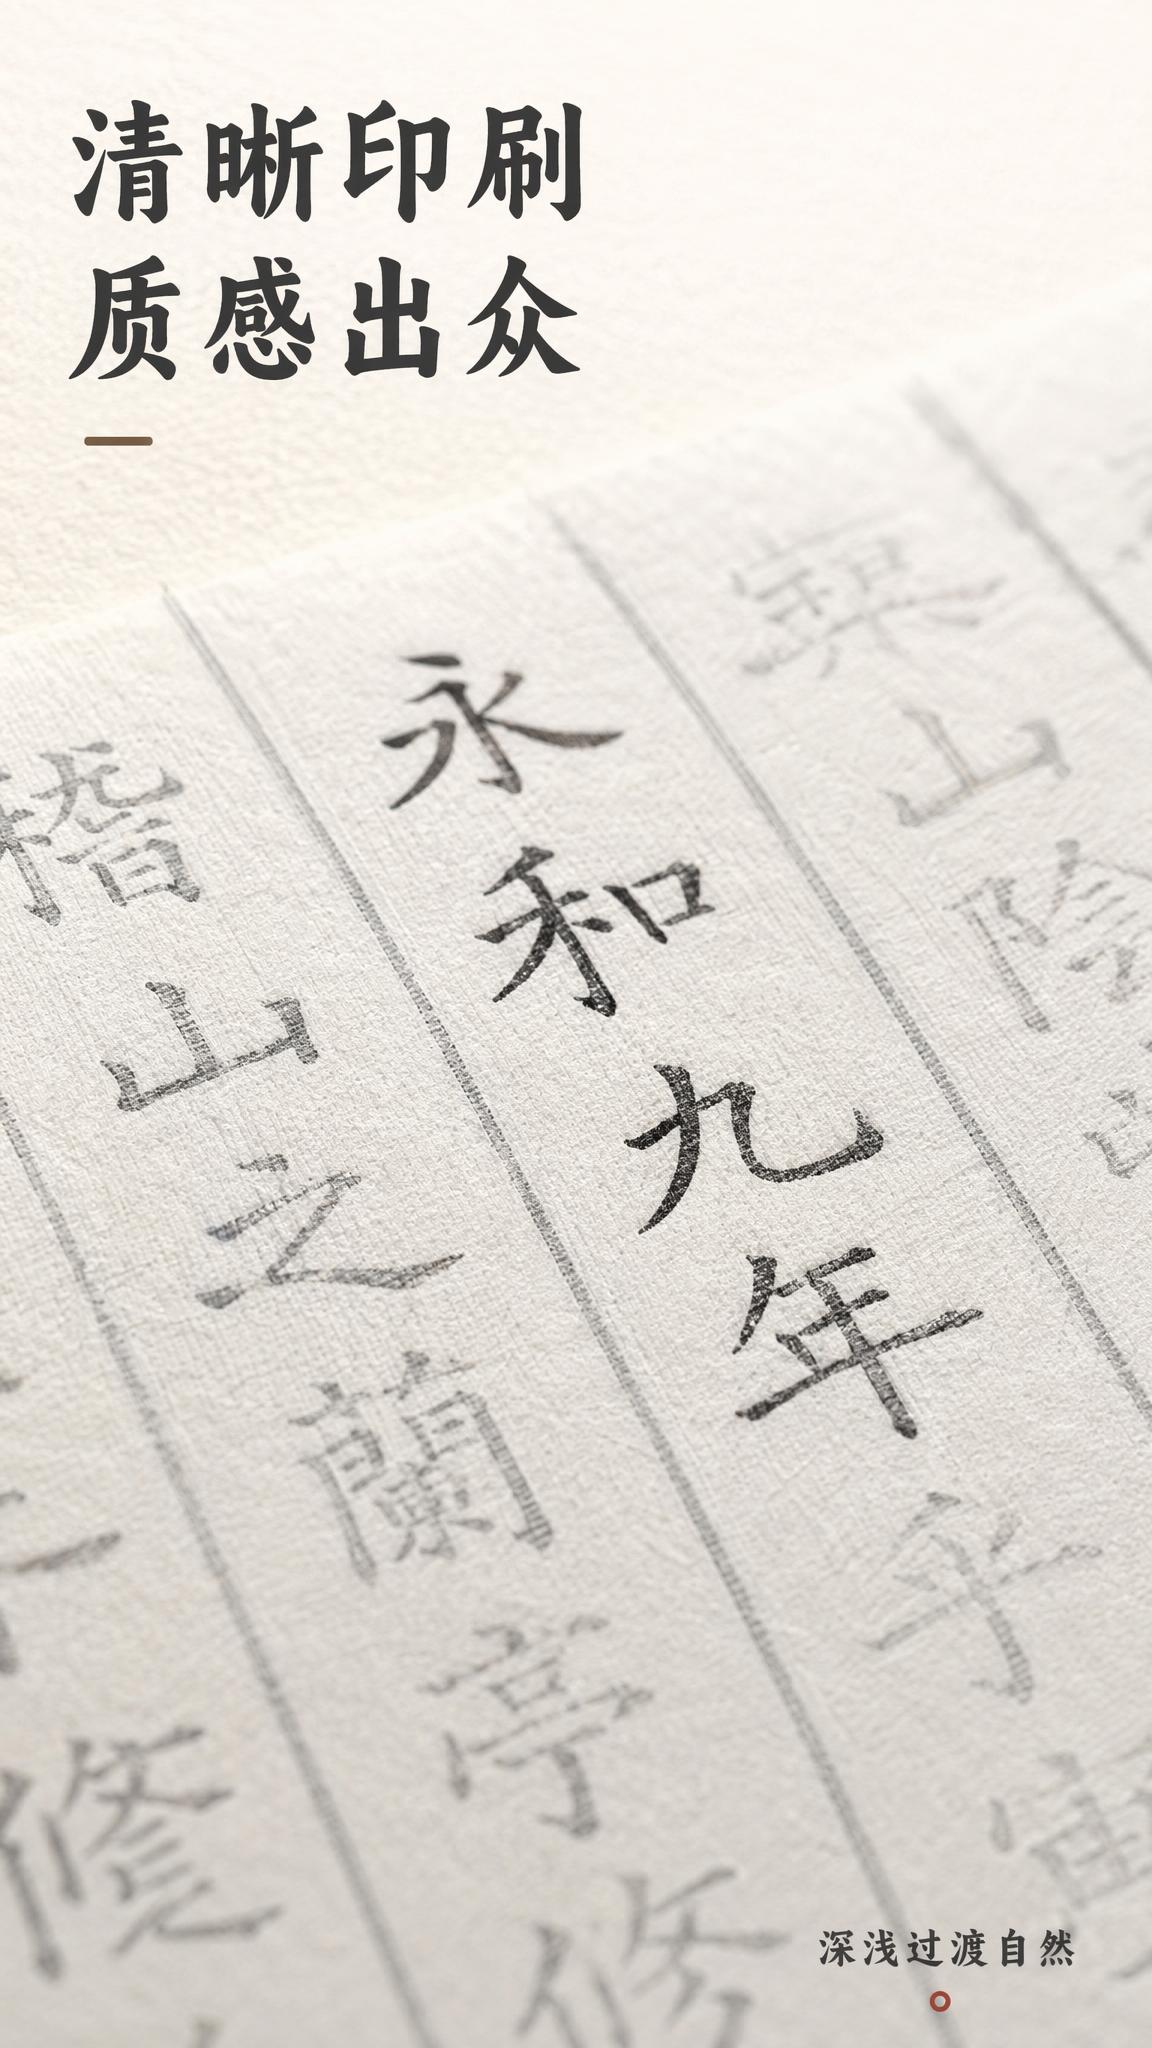 清晰印刷
质感出众
山陰
永和九年
稽山之蘭亭修
修
深浅过渡自然